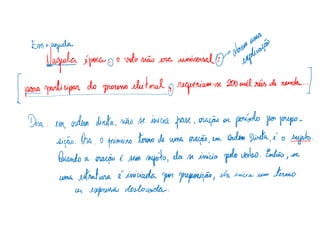 Em seguida
Naquela época, o voto não era universal: → Vocem uma
explicação
[para participar do processo eleitoral, requeriam-se 200 mil réis de renda...]
Dica: em ordem direta, não se inicia frase, oração ou período por prepo-
sição. Ora, o primeiro termo de uma oração, em ordem direta, é o sujeito.
Quando a oração é sem sujeito, ela se inicia pelo verbo. Então, se
uma estrutura é iniciada por preposição, ela inicia um termo
ou expressa deslocada.